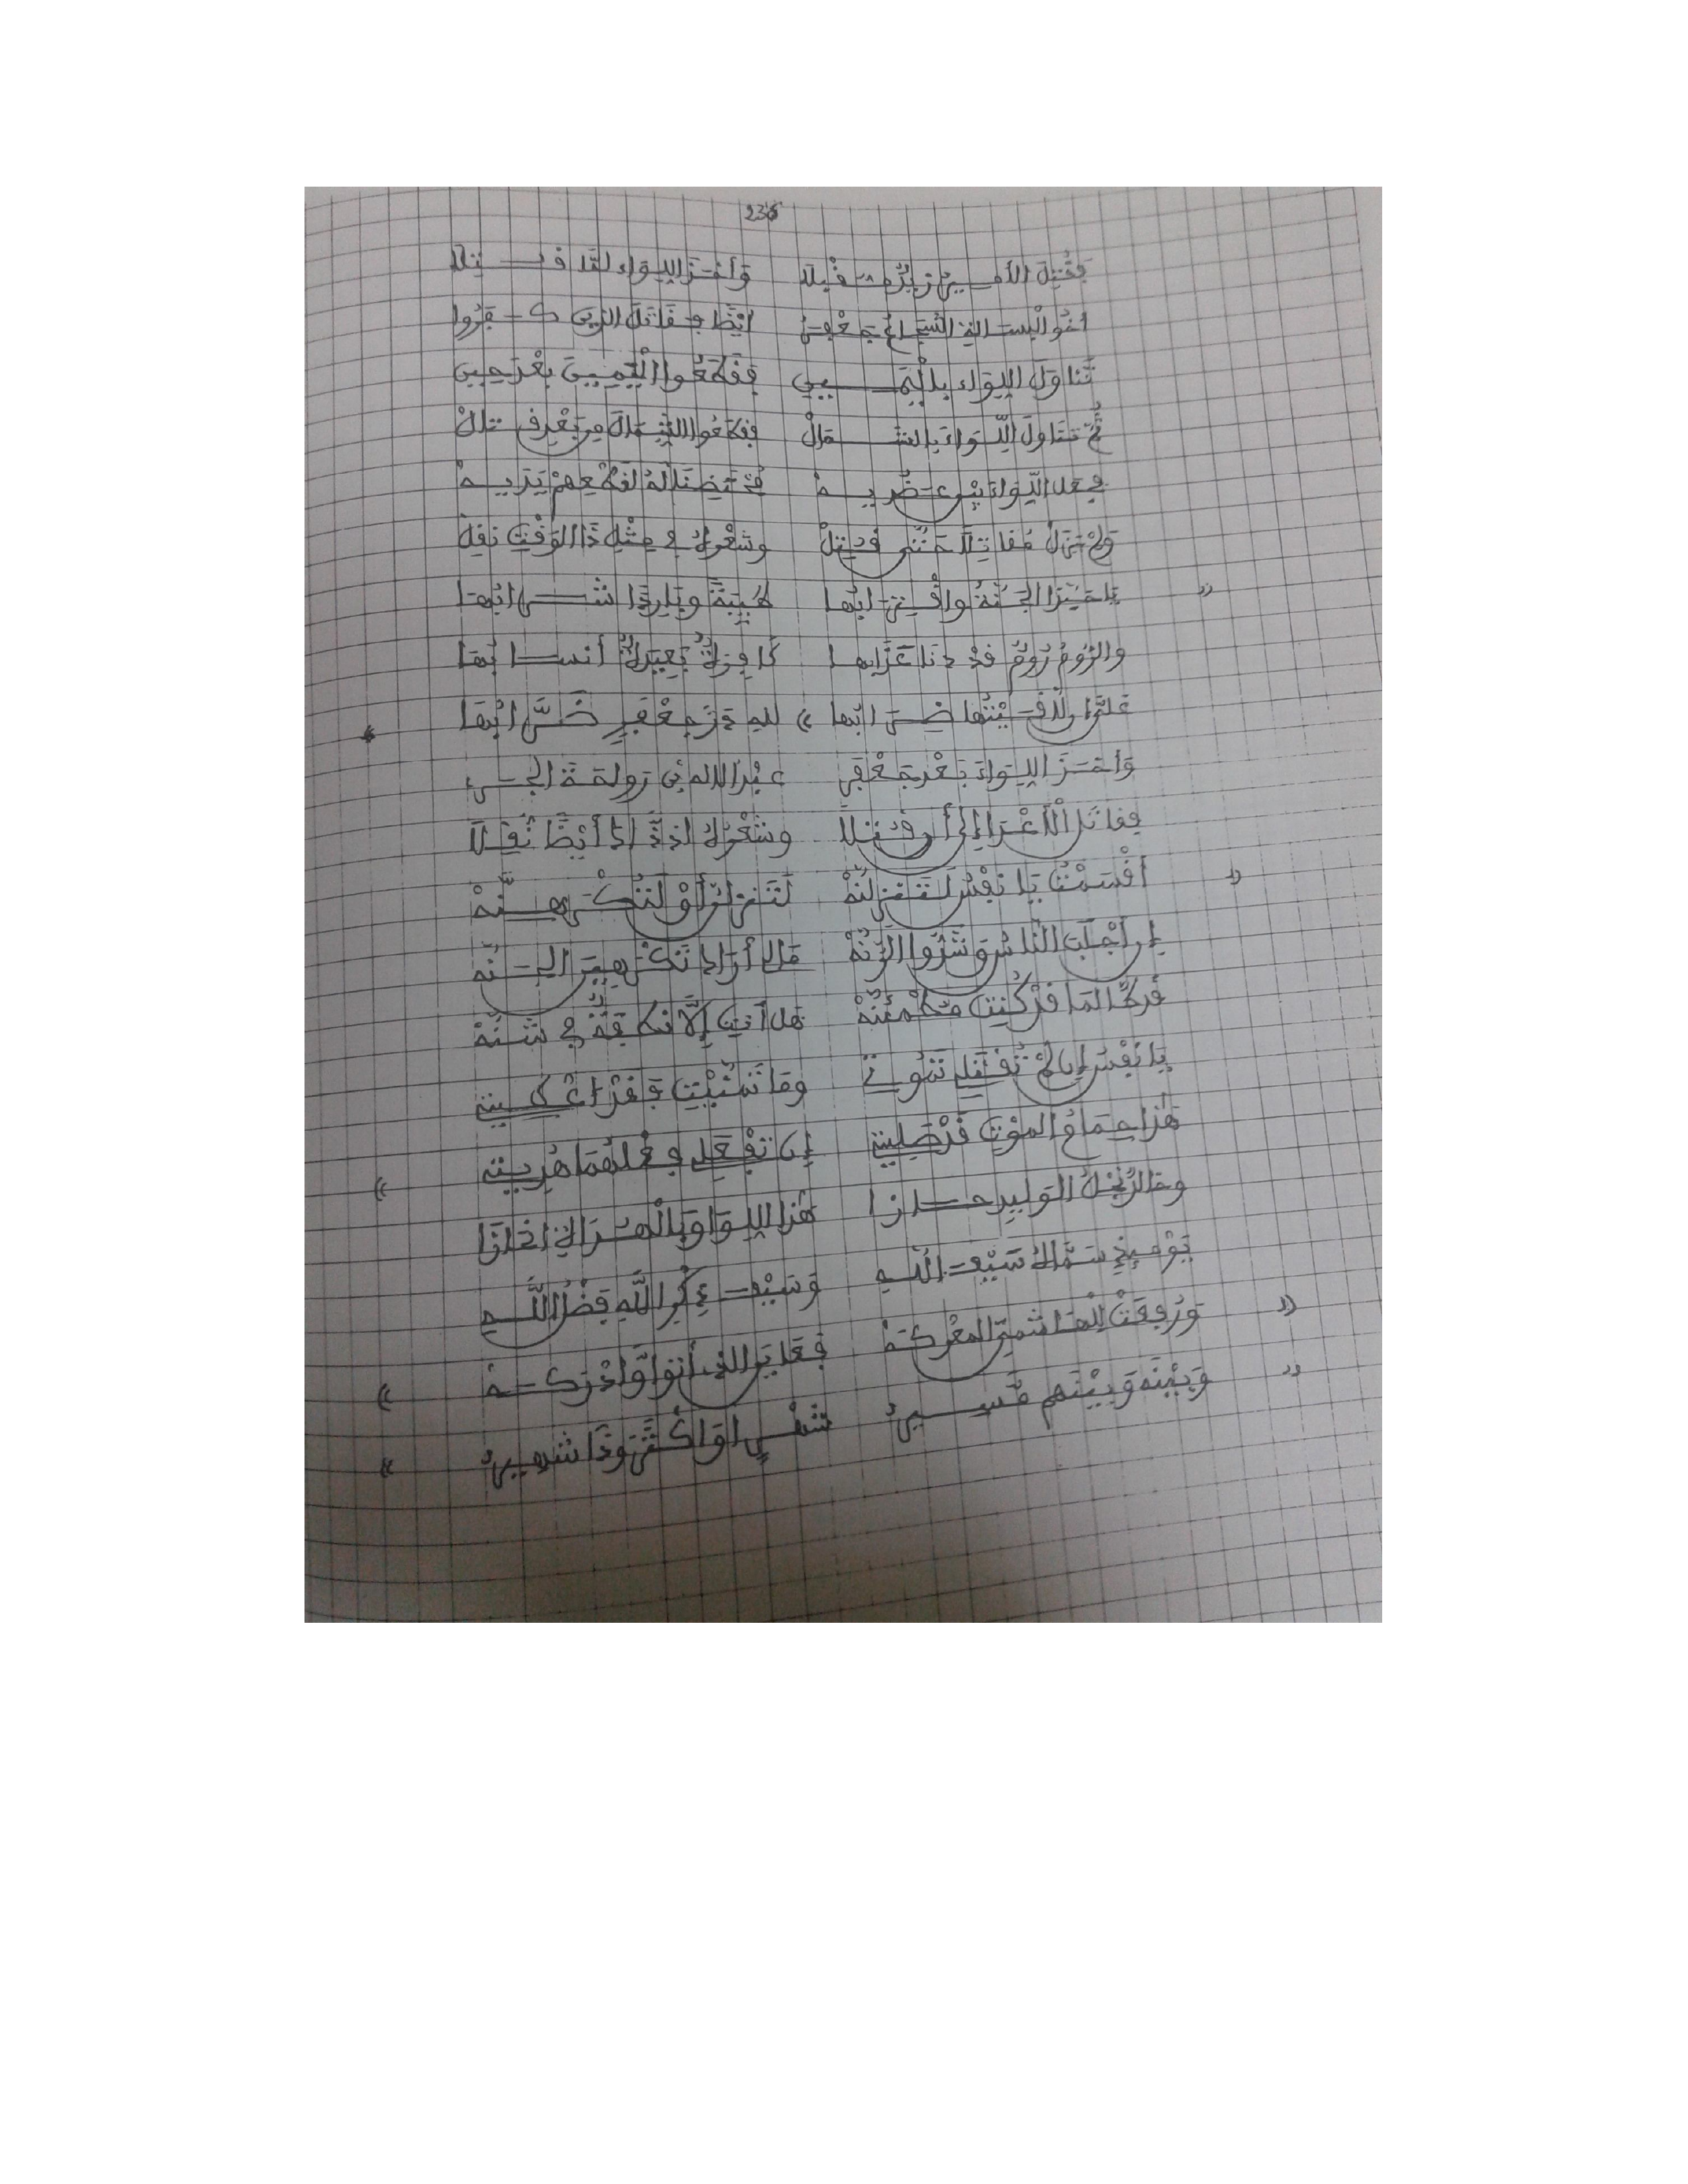 236
فَقُتِلَ الأمير زيد مقبلا وَأخذ اللواء لمّا قتلا
أخو الْبسالة الشجاع جعفر أيضا فقاتل الذين كفروا
تَناوَلَ اللواء باليمين فقطعوا اليمين بعد حين
ثُمّ تناول اللّواء بالشمال فقطعوا الشمال من بعد تال
فجعل اللّواء بين عضديه محتضنا له لقطعهم يديه
ولم يزل مُقاتلا حتى قُتِلْ وشعره في مثل ذا الوقت نقِلْ
« يا حبّذا الجنّةُ واقْترابُها طيبةً وباردا شرابُها
والرّومُ رُومٌ قد دنا عذابها كافرةٌ بعيدةٌ أنسابُها
عَلَيَّ إن لاقيْتُها ضرابها » لله درّ جعْفرٍ ضرّابُها
وَأخذ اللواءَ بَعْدَ جعْفر عبد الاله بن رواحة الجرِي
فقاتل الأعْدا إلى أن قُتلا وشعْره إذ ذّاك أيضًا نُقِلا
« أقْسمْتُ يا نفْسُ لَتَنزِلِنّهْ لَتَنزلنّ أوْ لَتُكْرهنّهْ
إن أجْلَبَ النّاسُ وَشَدّوا الرّنّهْ مَالي أرَاك تَكْرهين الجنّهْ
قد طالما قدْ كُنتِ مُطْمئنّهْ هل أنتِ إلّا نطفةٌ في شنّهْ
يا نفْسُ إن لمْ تُقْتَلي تموتي وما تمنّيْتِ فقدْ اعْطيتِ
هٰذا حمامُ الموْتِ قدْ صَلِيتِ إن تفْعَلي فعْلهُما هُديتِ »
وخالدُ نجْلُ الوليد حازا هٰذا اللوا وبالهدى اذ فازا
يَوْمَئِذٍ سَمّاهُ سَيْفَ اللهِ وَسَيْفُ ذِكْرِ اللهِ فَضْلُ اللهِ
« ورُفِعَتْ لِلْهَاشميّ المعْركهْ فعَايَن الذي أتوا وَادْركهْ »
« وَبيْنه وَبيْنهم مَسير شَهْرٍ اوَ اكْثَرُ وَذَا شَهير »